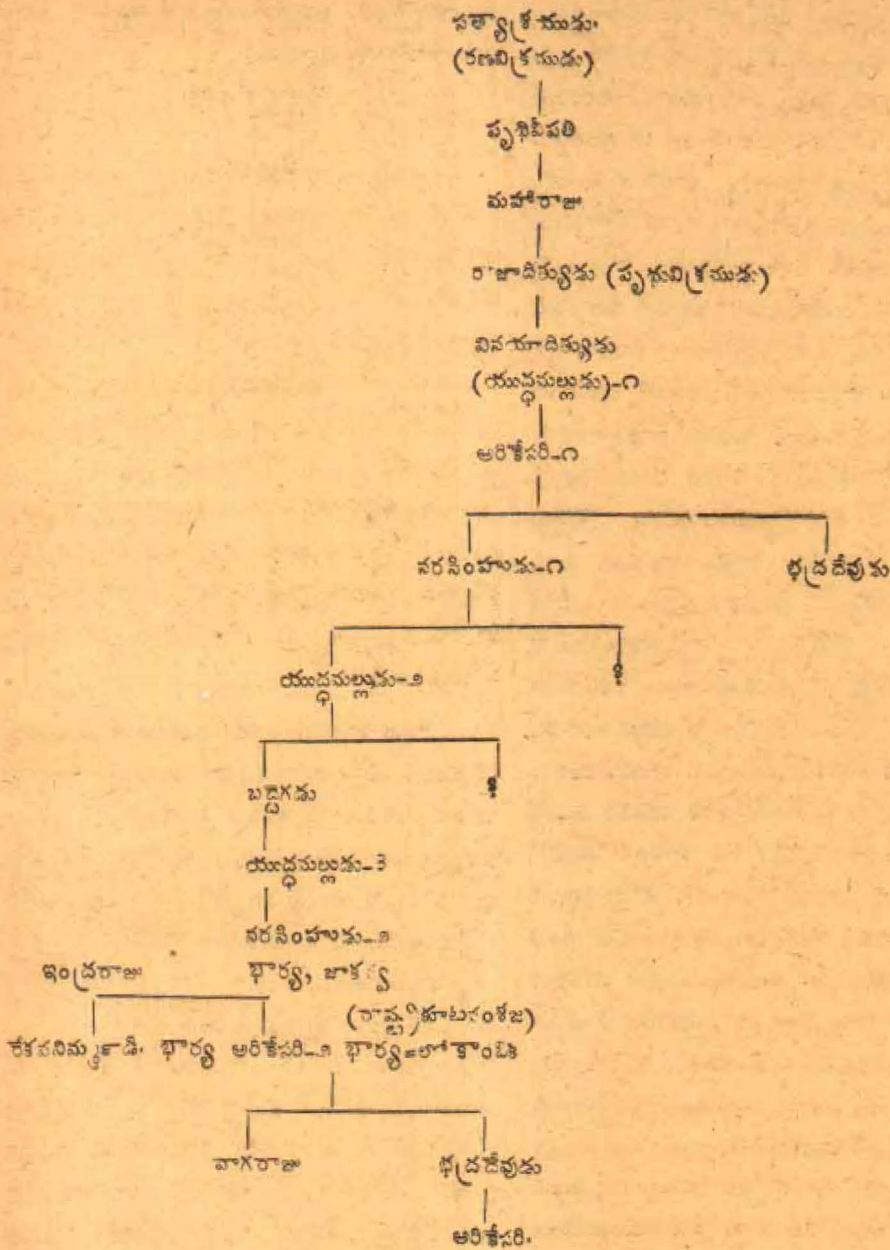 సత్యాశ్రయుడు.
(రణవిక్రముడు)
పృథివీపతి
మహారాజు
రాజాదిత్యుడు (పృథువిక్రముడు)
వినయాదిత్యుడు
(యుద్ధమల్లుడు)-౧
అరికేసరి-౧
నరసింహుడు-౧ భద్రదేవుడు
యుద్ధమల్లుడు-౨ ?
బద్దెగడు ?
యుద్ధమల్లుడు-3
నరసింహుడు-౨
ఇంద్రరాజు భార్య, జాకవ్వ
(రాష్ట్రకూటవంశజ)
రేకవనిమ్మడి. భార్య అరికేసరి-౨ భార్య=లోకాంబిక
వాగరాజు భద్రదేవుడు
అరికేసరి.